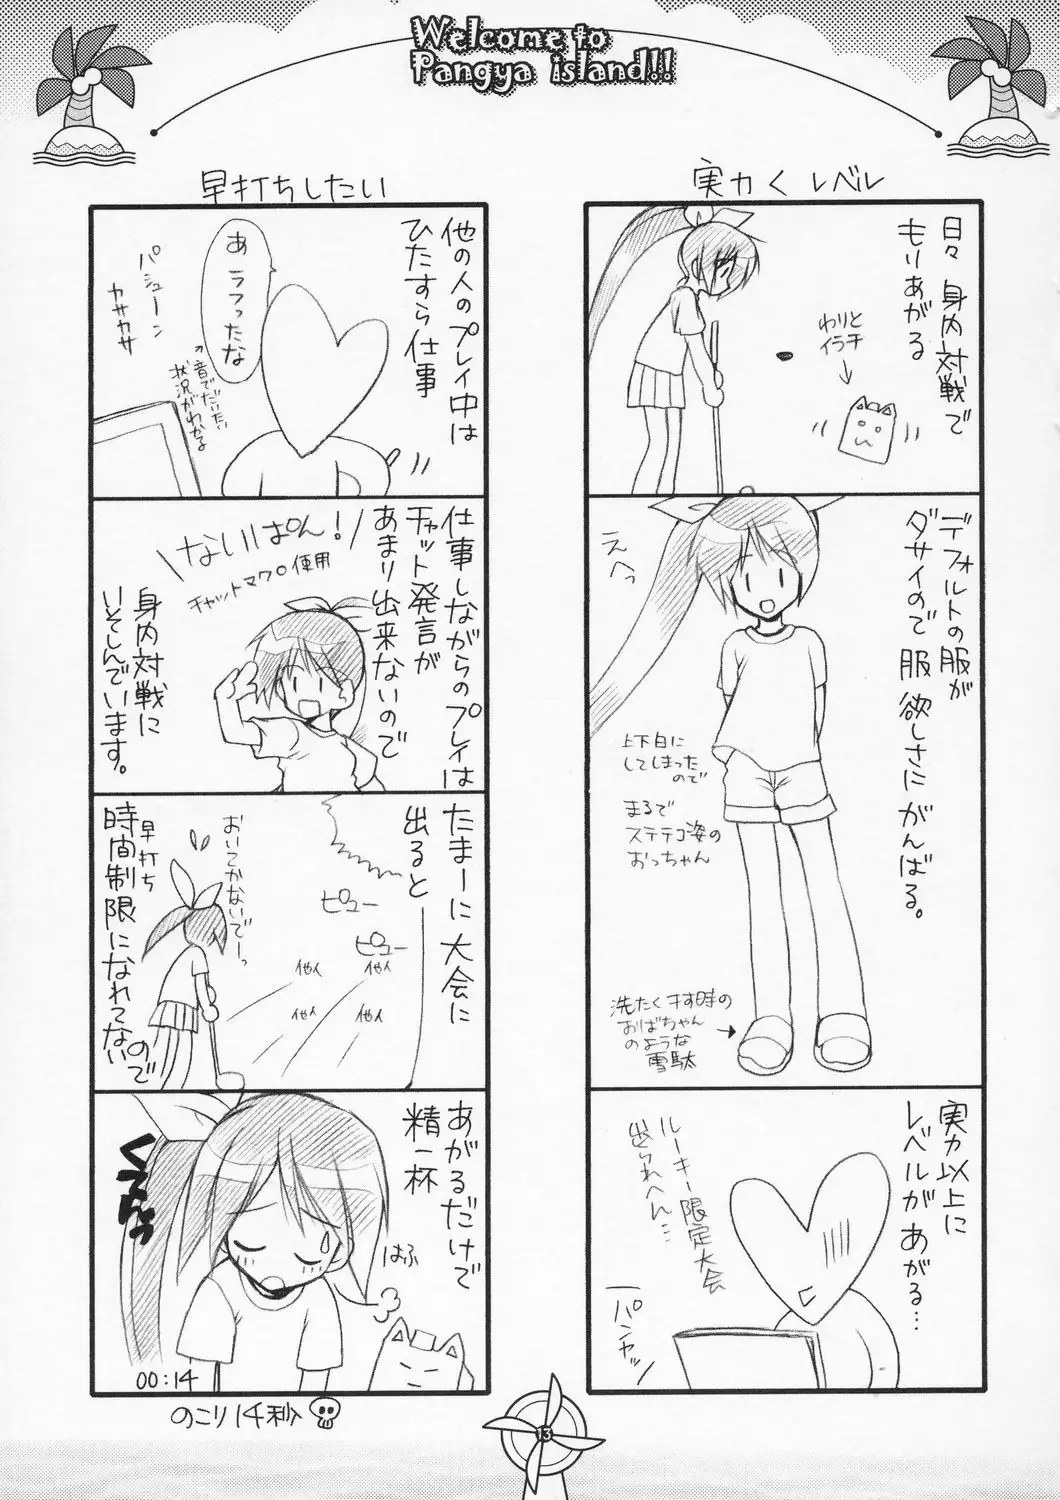 Welcome to
Pangya island!!
実力く レベル
日々 身内対戦で
もりあがる
わりと
イラチ
デフォルトの服が
ダサイので 服 欲しさに がんばる。
えへっ
上下白に
してしまった
ので
まるで
ステテコ姿の
おっちゃん
洗たく干す時の
おばちゃん
のような
雪駄
実力以上に
レベルが あがる…
ルーキー限定大会
出られへん…
パンヤッ
早打ちしたい
他の人のプレイ中は
ひたすら仕事
あ ラフったな
パシューン
カサカサ
音でだいたい
状況がわかる
仕事しながらのプレイは
チャット発言が
あまり出来ないので
ないぱん!
チャットマクロ使用
身内対戦に
いそしんでいます。
たまーに 大会に
出ると
ピュー
ピュー
他人 他人
他人 他人
おいてかないでーっ
早打ち
時間制限になれてないので
あがるだけで
精一杯
はふ
00:14
のこり 14秒
13